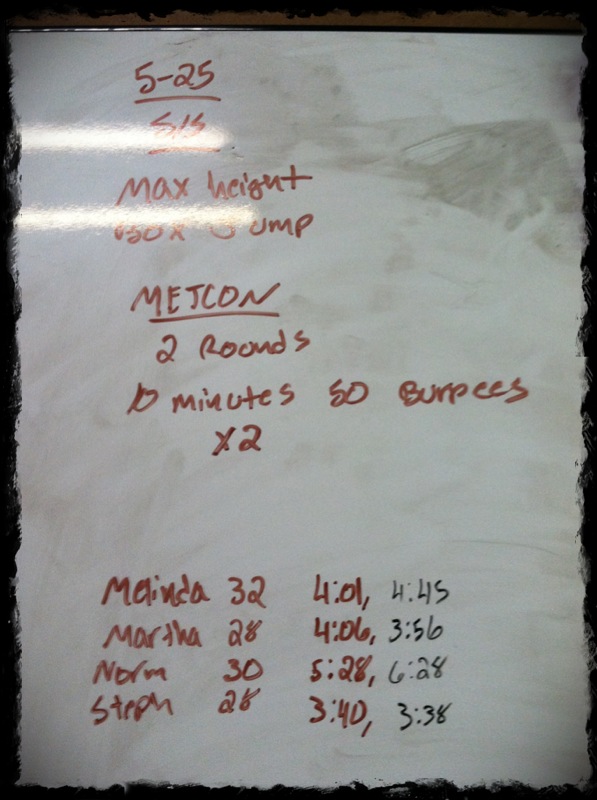 5-25
S/S
Max height
Box Jump
METCON
2 Rounds
10 minutes 50 Burpees
x2
Melinda 32 4:01, 4:45
Martha 28 4:06, 3:56
Norm 30 5:28, 6:28
Steph 28 3:40, 3:38